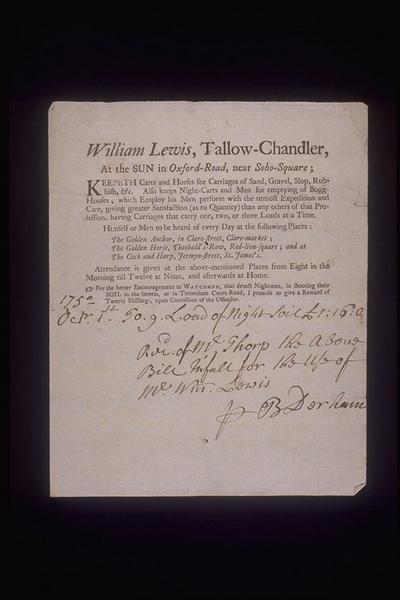 William Lewis, Tallow-Chandler,
At the SUN in Oxford-Road, near Soho-Square;
KEEPETH Carts and Horses for Carriages of Sand, Gravel, Slop, Rub-
bish, &c. Also keeps Night-Carts and Men for emptying of Bogg-
Houses; which Employ his Men perform with the utmost Expedition and
Care, giving greater Satisfaction (as to Quantity) than any others of that Pro-
fession, having Carriages that carry one, two, or three Loads at a Time.
Himself or Men to be heard of every Day at the following Places:
The Golden Anchor, in Clare-street, Clare-market;
The Golden Horse, Theobald's-Row, Red-lion-square; and at
The Cock and Harp, Jermyn-street, St. James's.
Attendance is given at the above-mentioned Places from Eight in the
Morning till Twelve at Noon, and afterwards at Home.
☞ For the better Encouragement to WATCHMEN, that detect Nightmen, in shooting their
SOIL in the streets, or in Tottenham Court-Road, I promise to give a Reward of
Twenty Shillings, upon Conviction of the Offender.
1752
Octr. 1st. To. 9. Load of Night Soil £1:16:0
Recd. of Mr. Thorp the Above
Bill In full for the Use of
Mr. Wm. Lewis
B Derham